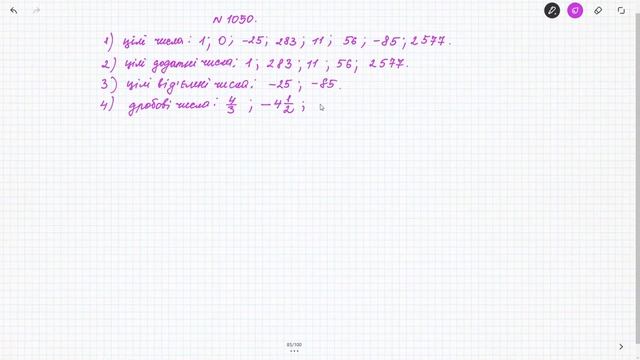 N 1050.
1) цілі числа: 1; 0; -25; 283; 11; 56; -85; 2577.
2) цілі додатні числа: 1; 283; 11; 56; 2577.
3) цілі від'ємні числа: -25; -85.
4) дробові числа: 4/3; -4 1/2;
85/100